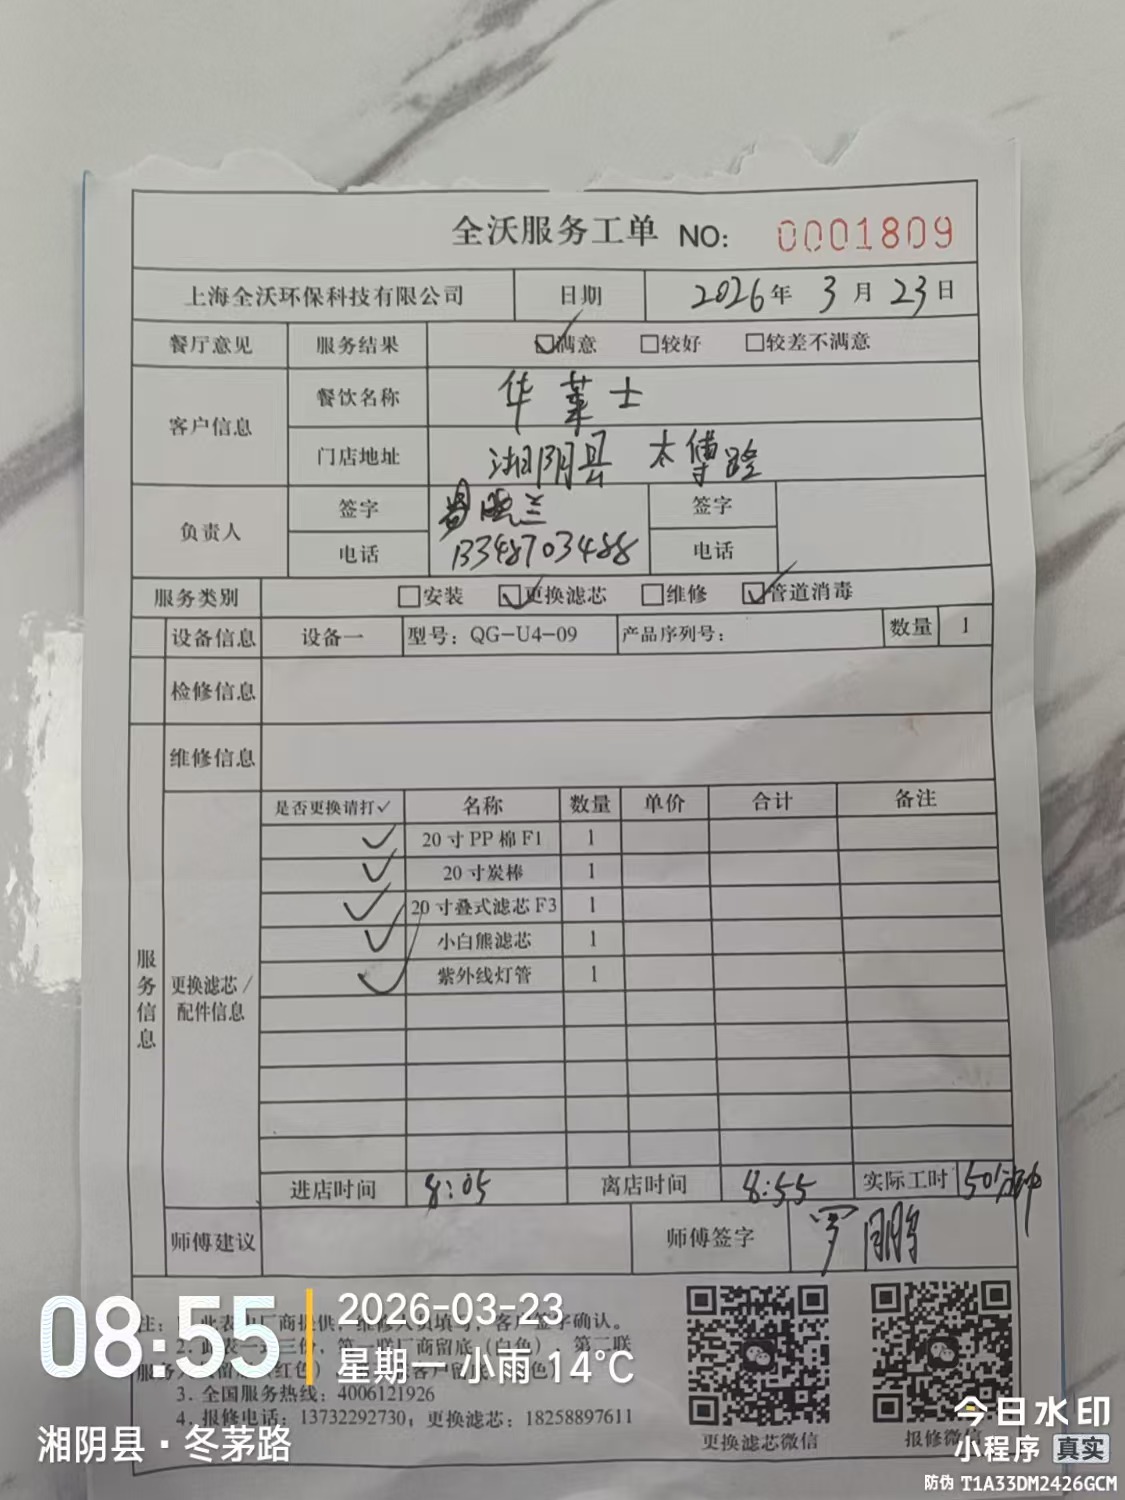 全沃服务工单 NO: 0001809
上海全沃环保科技有限公司 日期 2026年 3月 23日
餐厅意见 服务结果 ☑满意 □较好 □较差不满意
客户信息 餐饮名称 华莱士
门店地址 湘阴县 太傅路
负责人 签字 签字
电话 13348703488 电话
服务类别 □安装 ☑更换滤芯 □维修 ☑管道消毒
设备信息 设备一 型号：QG-U4-09 产品序列号： 数量 1
检修信息
维修信息
服务信息
更换滤芯/配件信息
是否更换请打✓ 名称 数量 单价 合计 备注
✓ 20寸PP棉F1 1
✓ 20寸炭棒 1
✓ 20寸叠式滤芯F3 1
✓ 小白熊滤芯 1
✓ 紫外线灯管 1
进店时间 8:05 离店时间 8:55 实际工时 50分钟
师傅建议 师傅签字 罗同鹏
注： 此表由厂商提供，维修人员填写，客户签字确认。
2. 此表一式三份，第一联厂商留底（白色） 第二联
服务 红色） 客户留 色）
3. 全国服务热线：4006121926
4. 报修电话：13732292730；更换滤芯：18258897611
更换滤芯微信 报修微信
08:55 2026-03-23
星期一 小雨 14°C
湘阴县·冬茅路
今日水印
小程序 真实
防伪 T1A33DM2426GCM